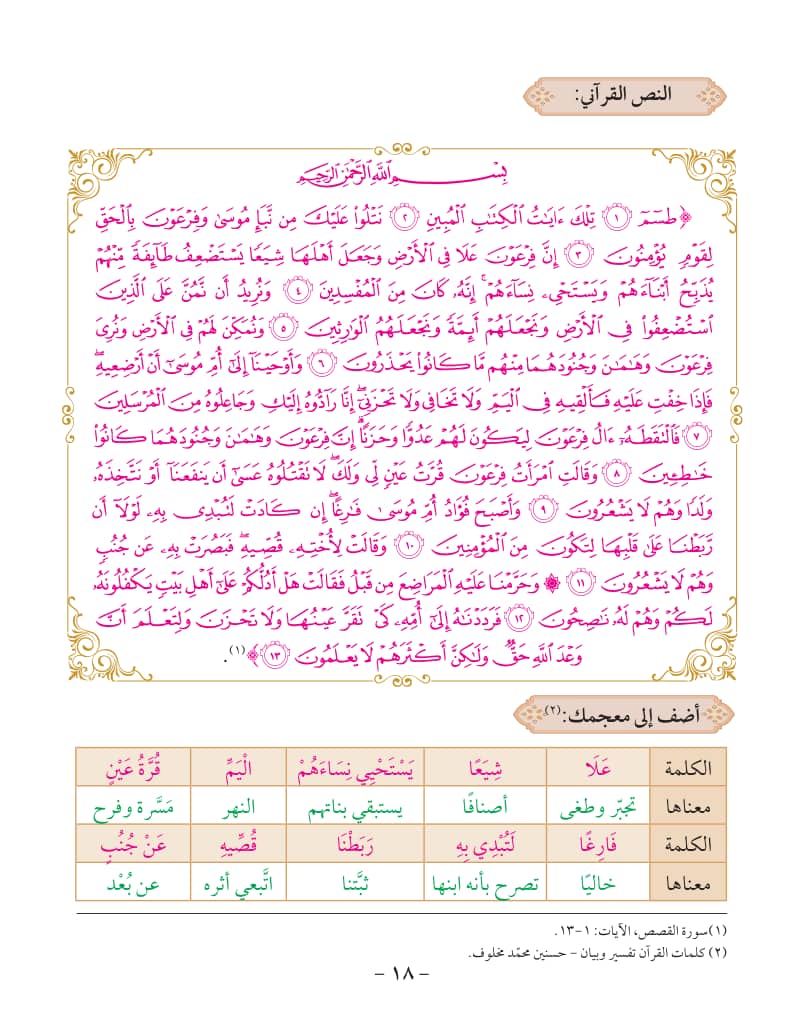 النص القرآني:
بِسْمِ اللَّهِ الرَّحْمَٰنِ الرَّحِيمِ
﴿ طسٓمٓ ١ تِلْكَ ءَايَٰتُ الْكِتَٰبِ الْمُبِينِ ٢ نَتْلُوا۟ عَلَيْكَ مِن نَّبَإِ مُوسَىٰ وَفِرْعَوْنَ بِالْحَقِّ
لِقَوْمٍ يُؤْمِنُونَ ٣ إِنَّ فِرْعَوْنَ عَلَا فِى الْأَرْضِ وَجَعَلَ أَهْلَهَا شِيَعًا يَسْتَضْعِفُ طَآئِفَةً مِّنْهُمْ
يُذَبِّحُ أَبْنَآءَهُمْ وَيَسْتَحْىِۦ نِسَآءَهُمْ ۚ إِنَّهُۥ كَانَ مِنَ الْمُفْسِدِينَ ٤ وَنُرِيدُ أَن نَّمُنَّ عَلَى الَّذِينَ
اسْتُضْعِفُوا۟ فِى الْأَرْضِ وَنَجْعَلَهُمْ أَئِمَّةً وَنَجْعَلَهُمُ الْوَٰرِثِينَ ٥ وَنُمَكِّنَ لَهُمْ فِى الْأَرْضِ وَنُرِىَ
فِرْعَوْنَ وَهَٰمَٰنَ وَجُنُودَهُمَا مِنْهُم مَّا كَانُوا۟ يَحْذَرُونَ ٦ وَأَوْحَيْنَآ إِلَىٰٓ أُمِّ مُوسَىٰٓ أَنْ أَرْضِعِيهِ ۖ
فَإِذَا خِفْتِ عَلَيْهِ فَأَلْقِيهِ فِى الْيَمِّ وَلَا تَخَافِى وَلَا تَحْزَنِىٓ ۖ إِنَّا رَآدُّوهُ إِلَيْكِ وَجَاعِلُوهُ مِنَ الْمُرْسَلِينَ
٧ فَالْتَقَطَهُۥٓ ءَالُ فِرْعَوْنَ لِيَكُونَ لَهُمْ عَدُوًّا وَحَزَنًا ۗ إِنَّ فِرْعَوْنَ وَهَٰمَٰنَ وَجُنُودَهُمَا كَانُوا۟
خَٰطِـِٔينَ ٨ وَقَالَتِ امْرَأَتُ فِرْعَوْنَ قُرَّتُ عَيْنٍ لِّى وَلَكَ ۖ لَا تَقْتُلُوهُ عَسَىٰٓ أَن يَنفَعَنَآ أَوْ نَتَّخِذَهُۥ
وَلَدًا وَهُمْ لَا يَشْعُرُونَ ٩ وَأَصْبَحَ فُؤَادُ أُمِّ مُوسَىٰ فَٰرِغًا ۖ إِن كَادَتْ لَتُبْدِى بِهِۦ لَوْلَآ أَن
رَّبَطْنَا عَلَىٰ قَلْبِهَا لِتَكُونَ مِنَ الْمُؤْمِنِينَ ١٠ وَقَالَتْ لِأُخْتِهِۦ قُصِّيهِ ۖ فَبَصُرَتْ بِهِۦ عَن جُنُبٍ
وَهُمْ لَا يَشْعُرُونَ ١١ ۞ وَحَرَّمْنَا عَلَيْهِ الْمَرَاضِعَ مِن قَبْلُ فَقَالَتْ هَلْ أَدُلُّكُمْ عَلَىٰٓ أَهْلِ بَيْتٍ يَكْفُلُونَهُۥ
لَكُمْ وَهُمْ لَهُۥ نَٰصِحُونَ ١٢ فَرَدَدْنَٰهُ إِلَىٰٓ أُمِّهِۦ كَىْ تَقَرَّ عَيْنُهَا وَلَا تَحْزَنَ وَلِتَعْلَمَ أَنَّ
وَعْدَ اللَّهِ حَقٌّ وَلَٰكِنَّ أَكْثَرَهُمْ لَا يَعْلَمُونَ ١٣ ﴾(١).
أضف إلى معجمك:(٢)
الكلمة عَلَا شِيَعًا يَسْتَحْيِي نِسَاءَهُمْ الْيَمِّ قُرَّةُ عَيْنٍ
معناها تجبّر وطغى أصنافًا يستبقي بناتهم النهر مَسَّرة وفرح
الكلمة فَارِغًا لَتُبْدِي بِهِ رَبَطْنَا قُصِّيهِ عَنْ جُنُبٍ
معناها خاليًا تصرح بأنه ابنها ثبَّتنا اتَّبعي أثره عن بُعْد
(١) سورة القصص، الآيات: ١-١٣.
(٢) كلمات القرآن تفسير وبيان – حسنين محمّد مخلوف.
- ١٨ -